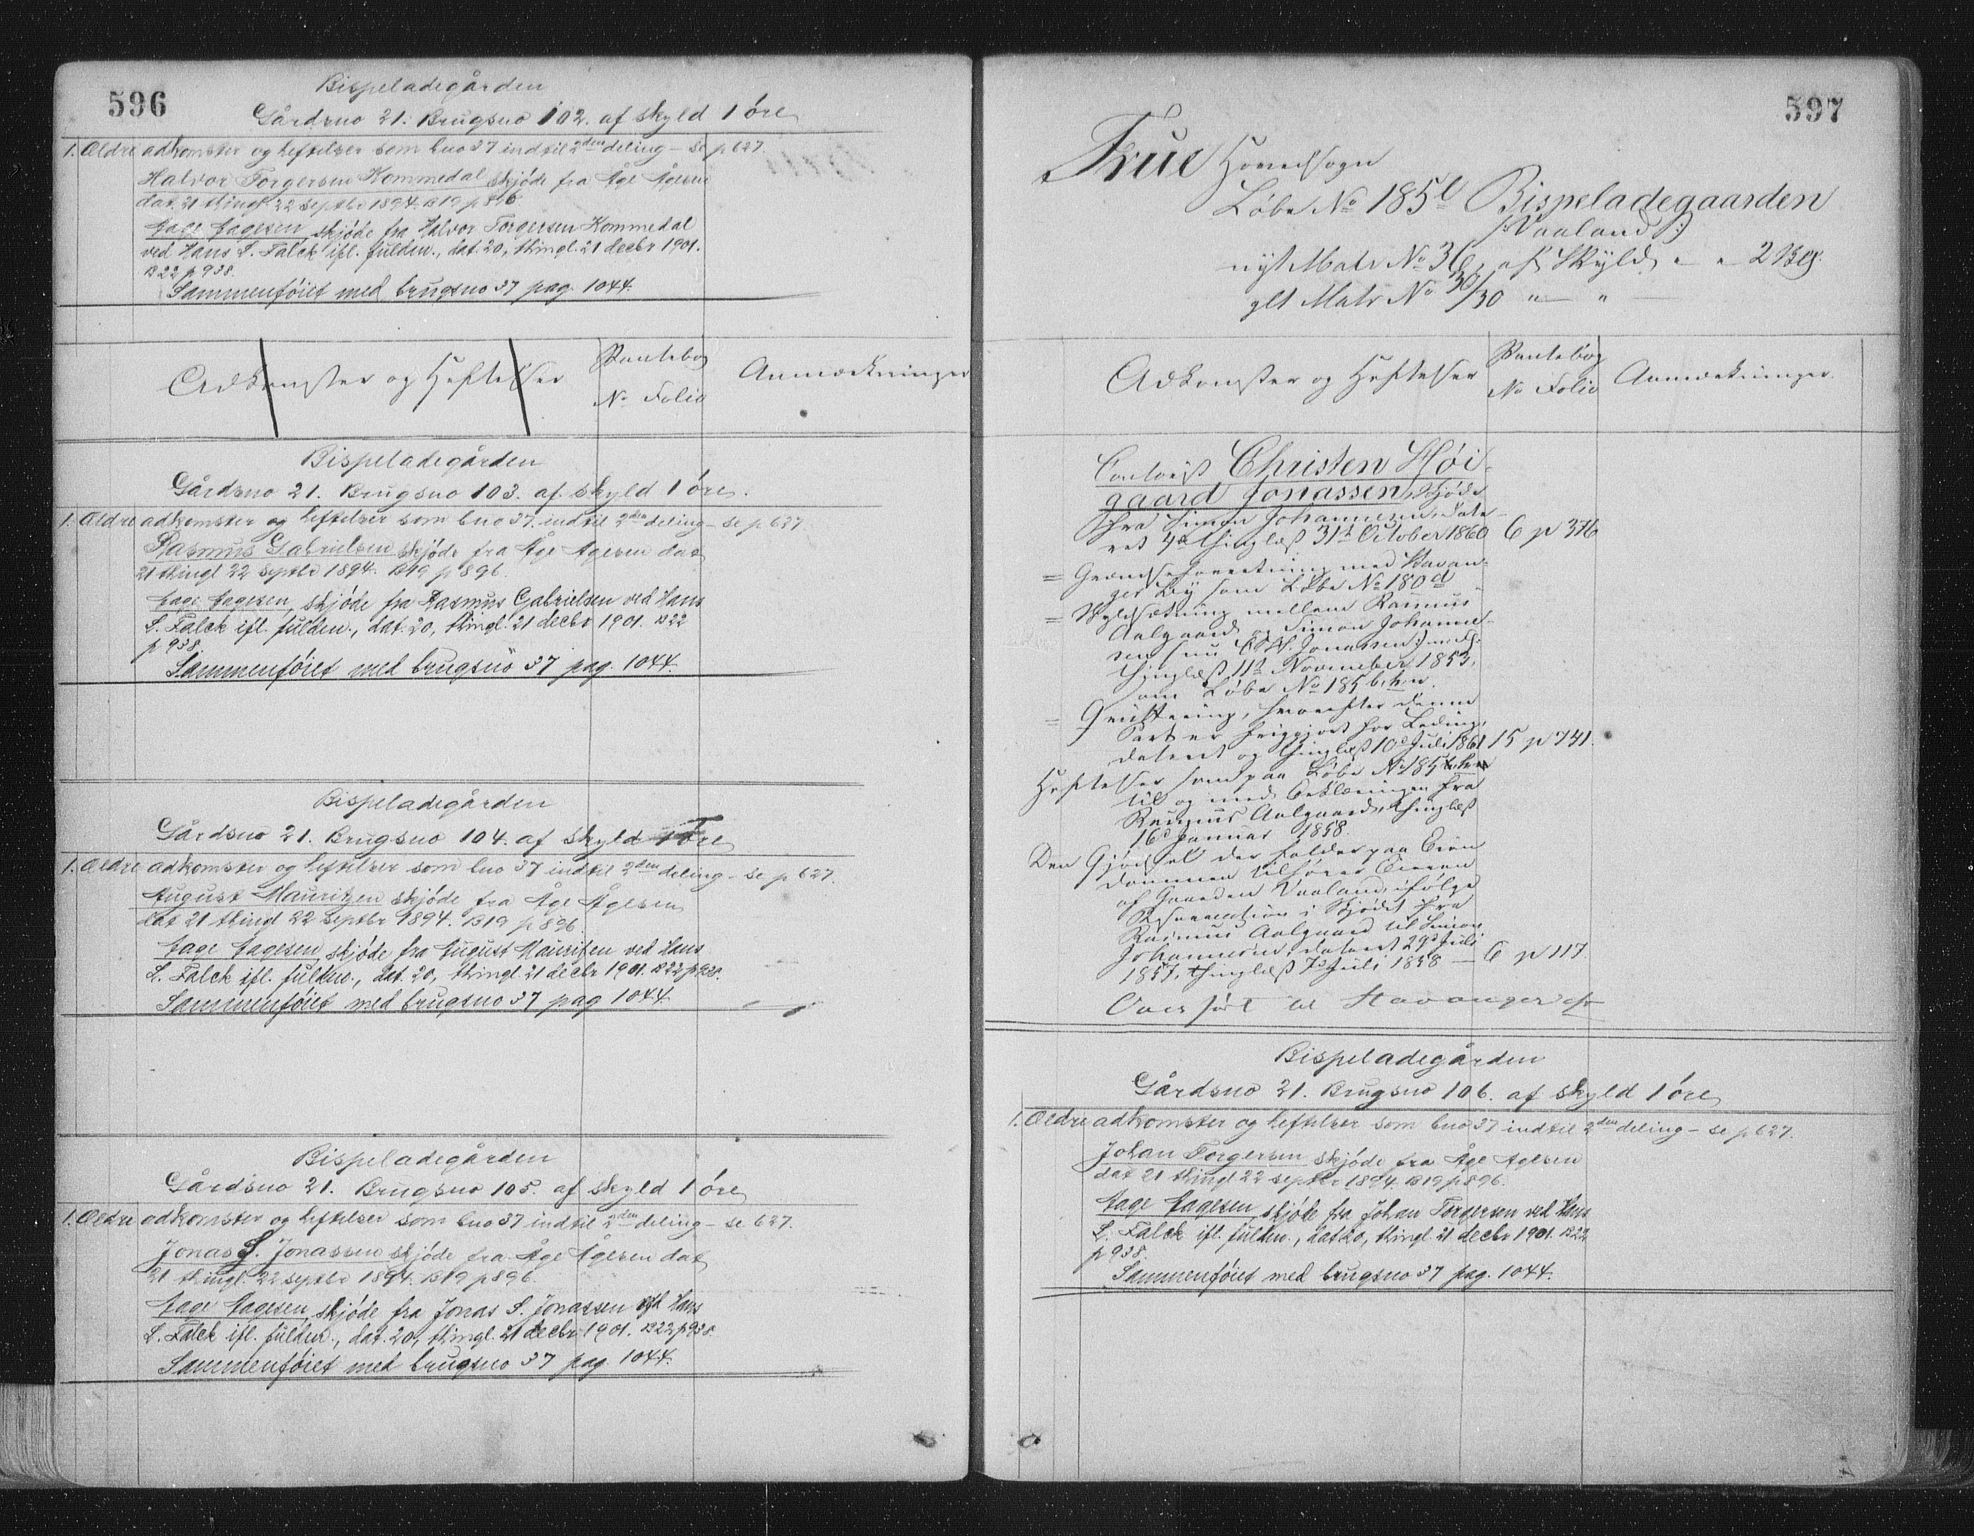 596
Bispeladegården
Gårdsno 21. Brugsno 102. af skyld 1 öre
1. Ældre adkomster og heftelser som bno 37 indtil 2den deling – se p 627.
Halvor Torgersen Kommedal skjöde fra Åge Ågesen
dat. 21 thingl. 22 septbr 1894. B19 p 896
Aage Aagesen, skjöde fra Halvor Torgersen Kommedal
ved Hans L. Falck ifl. fuldm., dat. 20, thingl. 21 decbr 1901.
B22 p 938.
Sammenföiet med brugsno 37 pag. 1044.
Adkomster og Heftelser
Pantebog
No Folio
Anmærkninger
Bispeladegården
Gårdsno 21. Brugsno 103. af skyld 1 öre.
1. Ældre adkomster og heftelser som bno 37. indtil 2den deling – se p 627.
Rasmus Gabrielsen skjöde fra Åge Ågesen dat
21 thingl 22 septbr 1894. B19 p 896.
Aage Aagesen, skjöde fra Rasmus Gabrielsen ved Hans
L. Falck ifl. fuldm., dat. 20, thingl. 21 decbr 1901. B22
p 938.
Sammenföiet med brugsno 37 pag. 1044.
Bispeladegården
Gårdsno 21. Brugsno 104. af skyld 1 öre
1. Ældre adkomster og heftelser som bno 37 indtil 2den deling – se p 627.
August Mauritzen skjöde fra Åge Ågesen
dat 21 thingl 22 septbr 1894. B19 p 896
Aage Aagesen, skjöde fra August Mauritzen ved Hans
L. Falck ifl. fuldm., dat. 20, thingl 21 decbr 1901. B22 p 938.
Sammenföiet med brugsno 37 pag 1044.
Bispeladegården
Gårdsno 21. Brugsno 105. af skyld 1 öre
1. Ældre adkomster og heftelser som bno 37 indtil 2den deling – se 627.
Jonas S. Jonassen skjöde fra Åge Ågesen dat
21 thingl. 22 septbr 1894. B19 p 896.
Aage Aagesen, skjöde fra Jonas S. Jonassen ved Hans
L. Falck ifl. fuldm., dat. 20, thingl. 21 decbr 1901. B22 p 938.
Sammenföiet med brugsno 37 pag. 1044.
597
Frue Hovedsogn
Löbe No 185l Bispeladegaarden
Vaaland
nyt Matr No 36 af Skyld " " 2 
glt Matr No 30/30 " "
Adkomster og Heftelser
Pantebog
No Folio
Anmærkninger.
Christen Höi-
gaard Jonassen, Skjöde
fra Simon Johannesen, date-
ret thinglæst 31te October 1860 6 p 376
= Grændseforretning med Stavan-
ger By som Löbe No 180d
= Skyldsætning mellem Rasmus
Aalgaard og Simon Johanne-
sen
thinglæst 11te November 1853,
som Löbe No 185
= Qvittering, hvorefter denne
Part er frigjort for Leding,
dateret og thinglæst 10de Juli 1861 15 p 741.
Heftelser som paa Löbe No 185
til og med Erklæringen fra
Rasmus Aalgaard, thinglæst
16de Januar 1858.
Den Gjödsel der falder paa Eien
dommen tilhörer Eieren
af Gaarden Vaaland, ifölge
Reservation i Skjödet fra
Rasmus Aalgaard til Simon
Johannesen, dateret 29de Juli
1857, thinglæst Juli 1858 – 6 p 117.
Overfört til Stavanger
Bispeladegården
Gårdsno 21. Brugsno 106. af skyld 1 öre
1. Ældre adkomster og heftelser som bno 37 indtil 2den deling – se p 627.
Johan Torgersen skjöde fra Åge Ågesen
dat 21 thingl 22 septbr 1894. B19 p 896.
Aage Aagesen, skjöde fra Johan Torgersen ved Hans
L. Falck ifl. fuldm., dat 20, thingl 21 decbr 1901. B22
p 938.
Sammenföiet med brugsno 37 pag. 1044.